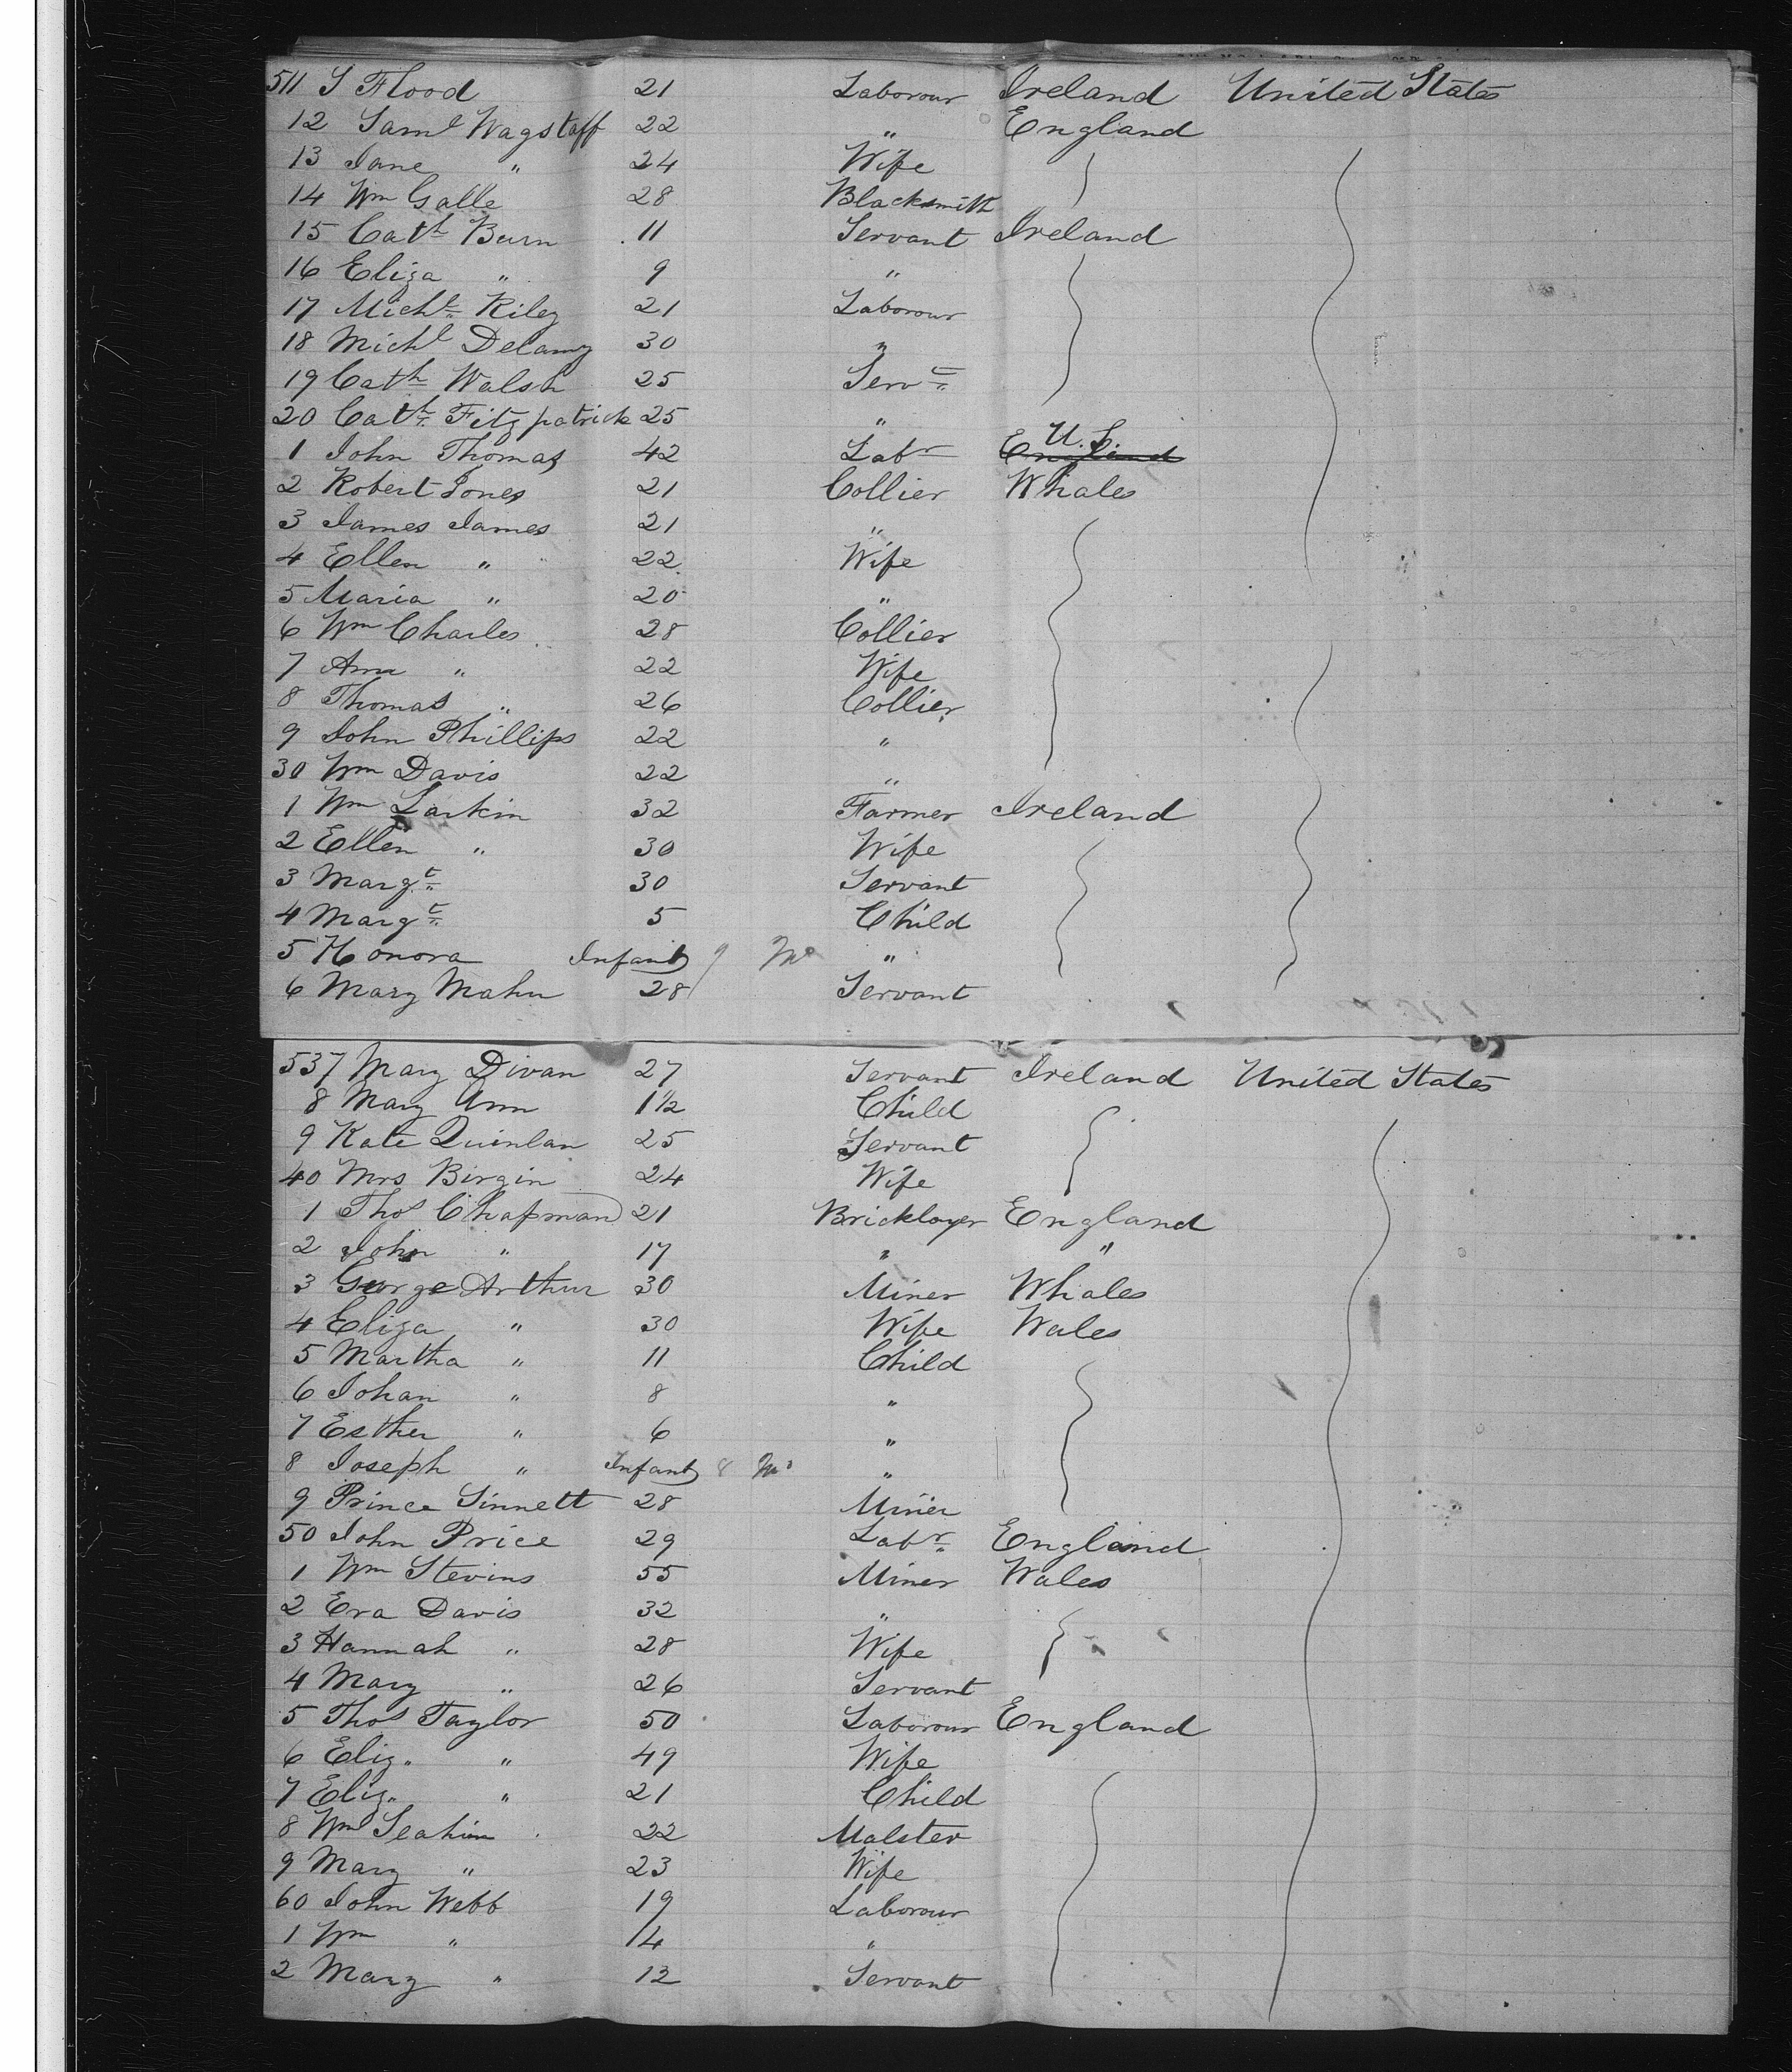 511 S Flood 21 Laborour Ireland United States
12 Saml Wagstaff 22 " England
13 Jane " 24 Wife
14 Wm Galle 28 Blacksmith
15 Cath Burn 11 Servant Ireland
16 Eliza " 9 "
17 Michl Riley 21 Laborour
18 Michl Delany 30 "
19 Cath Walsh 25 Servt
20 Cath Fitzpatrick 25 "
1 John Thomas 42 Labr England U.S.
2 Robert Jones 21 Collier Whales
3 James James 21 "
4 Ellen " 22 Wife
5 Maria " 20 "
6 Wm Charles 28 Collier
7 Ann " 22 Wife
8 Thomas " 26 Collier
9 John Phillips 22 "
30 Wm Davis 22 "
1 Wm Larkin 32 Farmer Ireland
2 Ellen " 30 Wife
3 Margt 30 Servant
4 Margt 5 Child
5 Honora Infant 9 Mo "
6 Mary Mahn 28 Servant
537 Mary Divan 27 Servant Ireland United States
8 Mary Ann 1½ Child
9 Kate Quinlan 25 Servant
40 Mrs Birgin 24 Wife
1 Thos Chapman 21 Bricklayer England
2 John " 17 " "
3 George Arthur 30 Miner Whales
4 Eliza " 30 Wife Wales
5 Martha " 11 Child
6 Johan " 8 "
7 Esther " 6 "
8 Joseph " Infant 8 Mo "
9 Prince Sinnett 28 Miner
50 John Price 29 Labr England
1 Wm Stevins 55 Miner Wales
2 Eva Davis 32 "
3 Hannah " 28 Wife
4 Mary " 26 Servant
5 Thos Taylor 50 Laborour England
6 Eliz. " 49 Wife
7 Eliz. " 21 Child
8 Wm 22 Malster
9 Mary " 23 Wife
60 John Webb 19 Laborour
1 Wm " 14 "
2 Mary " 12 Servant